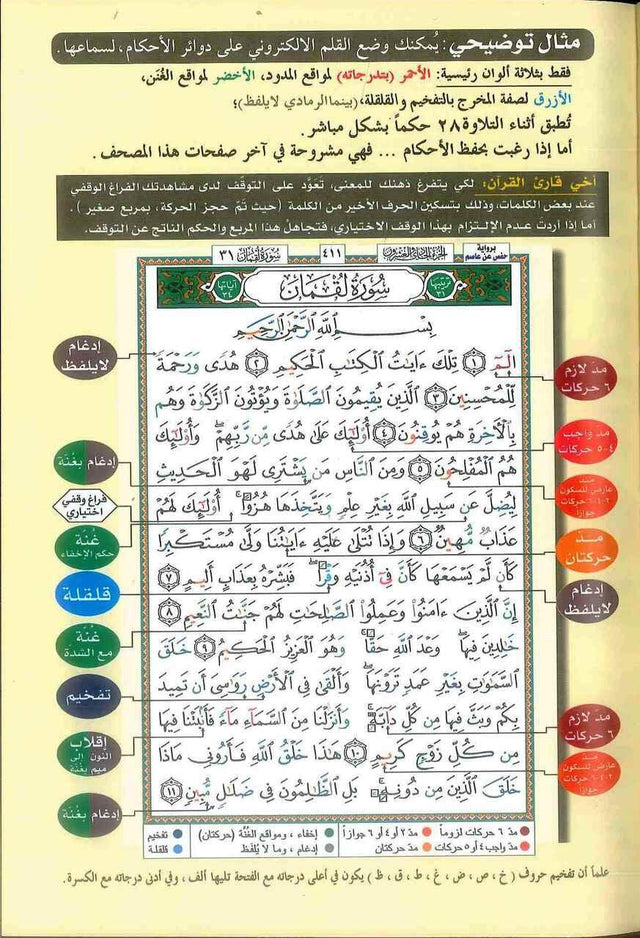 مثال توضيحي: يُمكنك وضع القلم الالكتروني على دوائر الأحكام، لسماعها.
فقط بثلاثة ألوان رئيسية: الأحمر (بتدرجاته) لمواقع المدود، الأخضر لمواقع الغُنَن،
الأزرق لصفة المخرج بالتفخيم والقلقلة، (بينما الرمادي لايلفظ)؛
تُطبق أثناء التلاوة ٢٨ حكماً بشكل مباشر.
أما إذا رغبت بحفظ الأحكام ... فهي مشروحة في آخر صفحات هذا المصحف.
أخي قارئ القرآن: لكي يتفرغ ذهنك للمعنى، تَعوَّد على التوقف لدى مشاهدتك الفراغ الوقفي
عند بعض الكلمات، وذلك بتسكين الحرف الأخير من الكلمة (حيث تمَّ حجز الحركة، بمربع صغير).
أما إذا أردتَ عدم الإلتزام بهذا الوقف الاختياري، فتجاهلْ هذا المربع والحكم الناتج عن التوقف.
برواية حفص عن عاصم
الجزء الحادي والعشرون
٤١١
سورة لقمان ٣١
ترتيبها ٣١
سُورَةُ لُقْمَانَ
آياتها ٣٤
بِسْمِ اللَّهِ الرَّحْمَٰنِ الرَّحِيمِ
الٓمٓ ١ تِلْكَ ءَايَٰتُ الْكِتَٰبِ الْحَكِيمِ ٢ هُدًى وَرَحْمَةً
لِّلْمُحْسِنِينَ ٣ الَّذِينَ يُقِيمُونَ الصَّلَوٰةَ وَيُؤْتُونَ الزَّكَوٰةَ وَهُم
بِالْأَخِرَةِ هُمْ يُوقِنُونَ ٤ أُوْلَٰٓئِكَ عَلَىٰ هُدًى مِّن رَّبِّهِمْ وَأُوْلَٰٓئِكَ
هُمُ الْمُفْلِحُونَ ٥ وَمِنَ النَّاسِ مَن يَشْتَرِى لَهْوَ الْحَدِيثِ
لِيُضِلَّ عَن سَبِيلِ اللَّهِ بِغَيْرِ عِلْمٍ وَيَتَّخِذَهَا هُزُوًا أُوْلَٰٓئِكَ لَهُمْ
عَذَابٌ مُّهِينٌ ٦ وَإِذَا تُتْلَىٰ عَلَيْهِ ءَايَٰتُنَا وَلَّىٰ مُسْتَكْبِرًا
كَأَن لَّمْ يَسْمَعْهَا كَأَنَّ فِىٓ أُذُنَيْهِ وَقْرًا فَبَشِّرْهُ بِعَذَابٍ أَلِيمٍ ٧
إِنَّ الَّذِينَ ءَامَنُوا وَعَمِلُوا الصَّٰلِحَٰتِ لَهُمْ جَنَّٰتُ النَّعِيمِ ٨
خَٰلِدِينَ فِيهَا وَعْدَ اللَّهِ حَقًّا وَهُوَ الْعَزِيزُ الْحَكِيمُ ٩ خَلَقَ
السَّمَٰوَٰتِ بِغَيْرِ عَمَدٍ تَرَوْنَهَا وَأَلْقَىٰ فِى الْأَرْضِ رَوَٰسِىَ أَن تَمِيدَ
بِكُمْ وَبَثَّ فِيهَا مِن كُلِّ دَآبَّةٍ وَأَنزَلْنَا مِنَ السَّمَآءِ مَآءً فَأَنۢبَتْنَا فِيهَا
مِن كُلِّ زَوْجٍ كَرِيمٍ ١٠ هَٰذَا خَلْقُ اللَّهِ فَأَرُونِى مَاذَا
خَلَقَ الَّذِينَ مِن دُونِهِ بَلِ الظَّٰلِمُونَ فِى ضَلَٰلٍ مُّبِينٍ ١١
مدّ لازم
٦ حركات
مدّ واجب
٤-٥ حركات
مدّ
عارض للسكون
٢-٤-٦ حركات
جوازاً
مدّ
حركتان
إدغام
لايلفظ
مدّ لازم
٦ حركات
مدّ
عارض للسكون
٢-٤-٦ حركات
جوازاً
إدغام
لايلفظ
إدغام بغُنّة
فراغ وقفي
اختياري
غُنّة
حكم الإخفاء
قلقلة
غُنّة
مع الشدة
تفخيم
إقلاب
النون إلى
ميم بغُنّة
إدغام بغُنّة
مدّ ٦ حركات لزوماً
مدّ ٢ أو ٤ أو ٦ جوازاً
إخفاء، ومواقع الغُنَّة (حركتان)
تفخيم
مدّ واجب ٤ أو ٥ حركات
مدّ حركتان
إدغام، وما لا يُلفظ
قلقلة
علماً أن تفخيم حروف (خ، ص، ض، غ، ط، ق، ظ) يكون في أعلى درجاته مع الفتحة تليها ألف، وفي أدنى درجاته مع الكسرة.